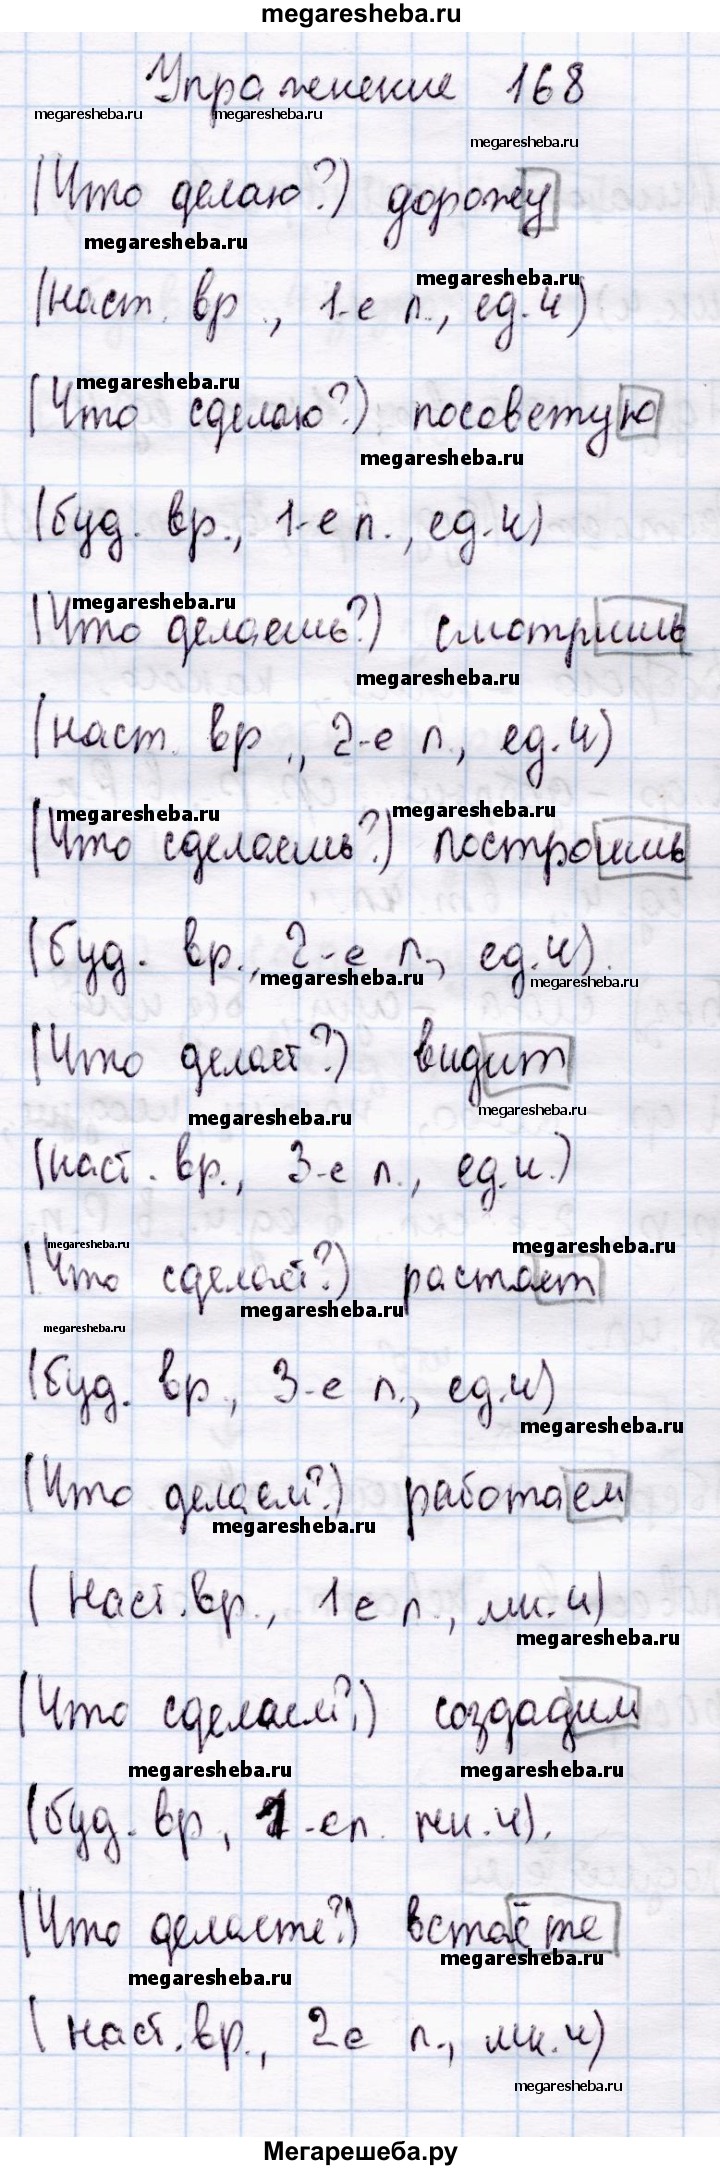 megaresheba.ru
Упражнение 168
megaresheba.ru megaresheba.ru
megaresheba.ru
(Что делаю?) дорожу
megaresheba.ru
megaresheba.ru
(наст. вр., 1-е л., ед.ч)
megaresheba.ru
(Что сделаю?) посоветую
megaresheba.ru
(буд. вр., 1-е л., ед.ч)
megaresheba.ru
(Что делаешь?) смотришь
megaresheba.ru
(наст. вр., 2-е л., ед.ч)
megaresheba.ru megaresheba.ru
(Что сделаешь?) построишь
(буд. вр., 2-е л., ед.ч).
megaresheba.ru megaresheba.ru
(Что делает?) видит
megaresheba.ru megaresheba.ru
(наст. вр., 3-е л., ед.ч.)
megaresheba.ru megaresheba.ru
(Что сделает?) растает
megaresheba.ru
megaresheba.ru
(буд. вр., 3-е л., ед.ч)
megaresheba.ru
(Что делаем?) работаем
megaresheba.ru
(наст. вр., 1 е л., мн.ч)
megaresheba.ru
(Что сделаем?) создадим
megaresheba.ru megaresheba.ru
(буд. вр, 1-е л. мн.ч).
(Что делаете?) встаёте
megaresheba.ru
megaresheba.ru
(наст. вр., 2 е л., мн.ч)
megaresheba.ru
Мегарешеба.ру